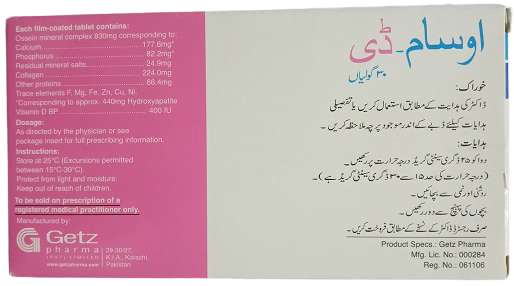 Each film-coated tablet contains:
Ossein mineral complex 830mg corresponding to:
Calcium............................177.6mg*
Phosphorus............................82.2mg*
Residual mineral salts............................24.9mg
Collagen............................224.0mg
Other proteins............................66.4mg
Trace elements F, Mg, Fe, Zn, Cu, Ni.
*Corresponding to approx. 440mg Hydroxyapatite
Vitamin D BP............................400 IU
Dosage:
As directed by the physician or see
package insert for full prescribing information.
Instructions:
Store at 25°C (Excursions permitted
between 15°C-30°C).
Protect from light and moisture.
Keep out of reach of children.
To be sold on prescription of a
registered medical practitioner only.
Manufactured by:
Getz
pharma
(PVT) LIMITED
www.getzpharma.com
29-30/27,
K.I.A., Karachi,
Pakistan.
اوسام۔ڈی
۳۰ گولیاں
خوراک:
ڈاکٹر کی ہدایت کے مطابق استعمال کریں یا تفصیلی
ہدایات کیلئے ڈبے کے اندر موجود پرچہ ملاحظہ کریں۔
ہدایات:
دوا کو ۲۵ ڈگری سینٹی گریڈ درجہ حرارت پر رکھیں۔
(درجہ حرارت کی حد ۱۵ سے ۳۰ ڈگری سینٹی گریڈ ہے)۔
روشنی اور نمی سے بچائیں۔
بچوں کی پہنچ سے دور رکھیں۔
صرف رجسٹرڈ ڈاکٹر کے نسخے کے مطابق فروخت کریں۔
Product Specs.: Getz Pharma
Mfg. Lic. No.: 000284
Reg. No.: 061106